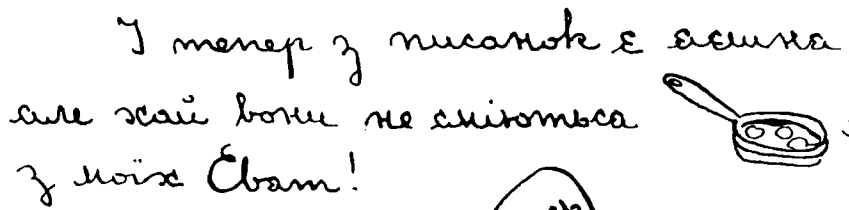 І тепер з писанок є аєшна
але хай вони не сміються
з моїх Ёват!